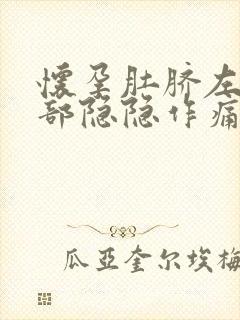 懷孕肚脐左
部隐隐作痛
瓜亚奎尔埃梅